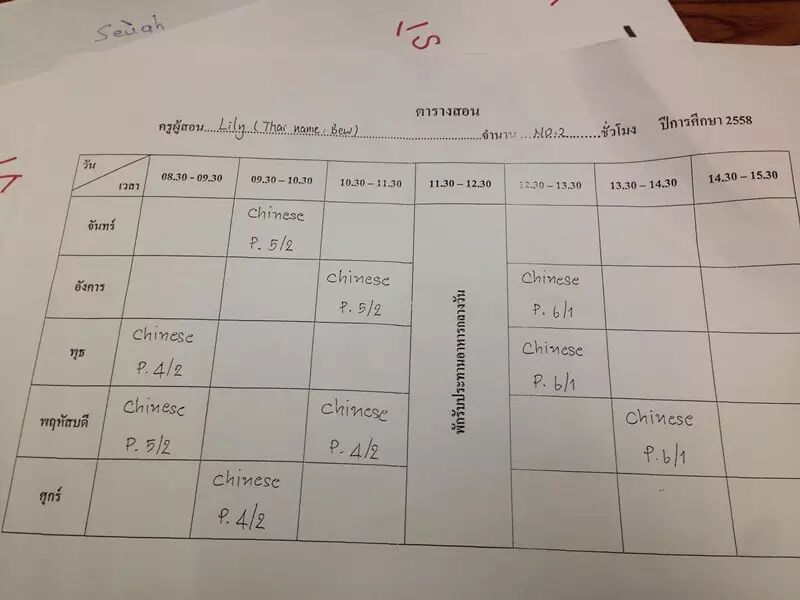 Seuah
15
ตารางสอน
ครูผู้สอน....Lily (Thai name : Bew)....จำนวน....NO.2....ชั่วโมง ปีการศึกษา 2558
วัน
เวลา
08.30 - 09.30 09.30 – 10.30 10.30 – 11.30 11.30 – 12.30 12.30 – 13.30 13.30 – 14.30 14.30 – 15.30
จันทร์
Chinese
P. 5/2
อังคาร
Chinese Chinese
P. 5/2 P. 6/1
พุธ
Chinese Chinese
P. 4/2 P. 6/1
พฤหัสบดี
Chinese Chinese Chinese
P. 5/2 P. 4/2 P. 6/1
ศุกร์
Chinese
P. 4/2
พักรับประทานอาหารกลางวัน